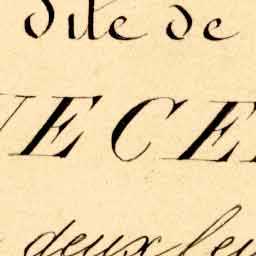 dite de
VECE
deux leu